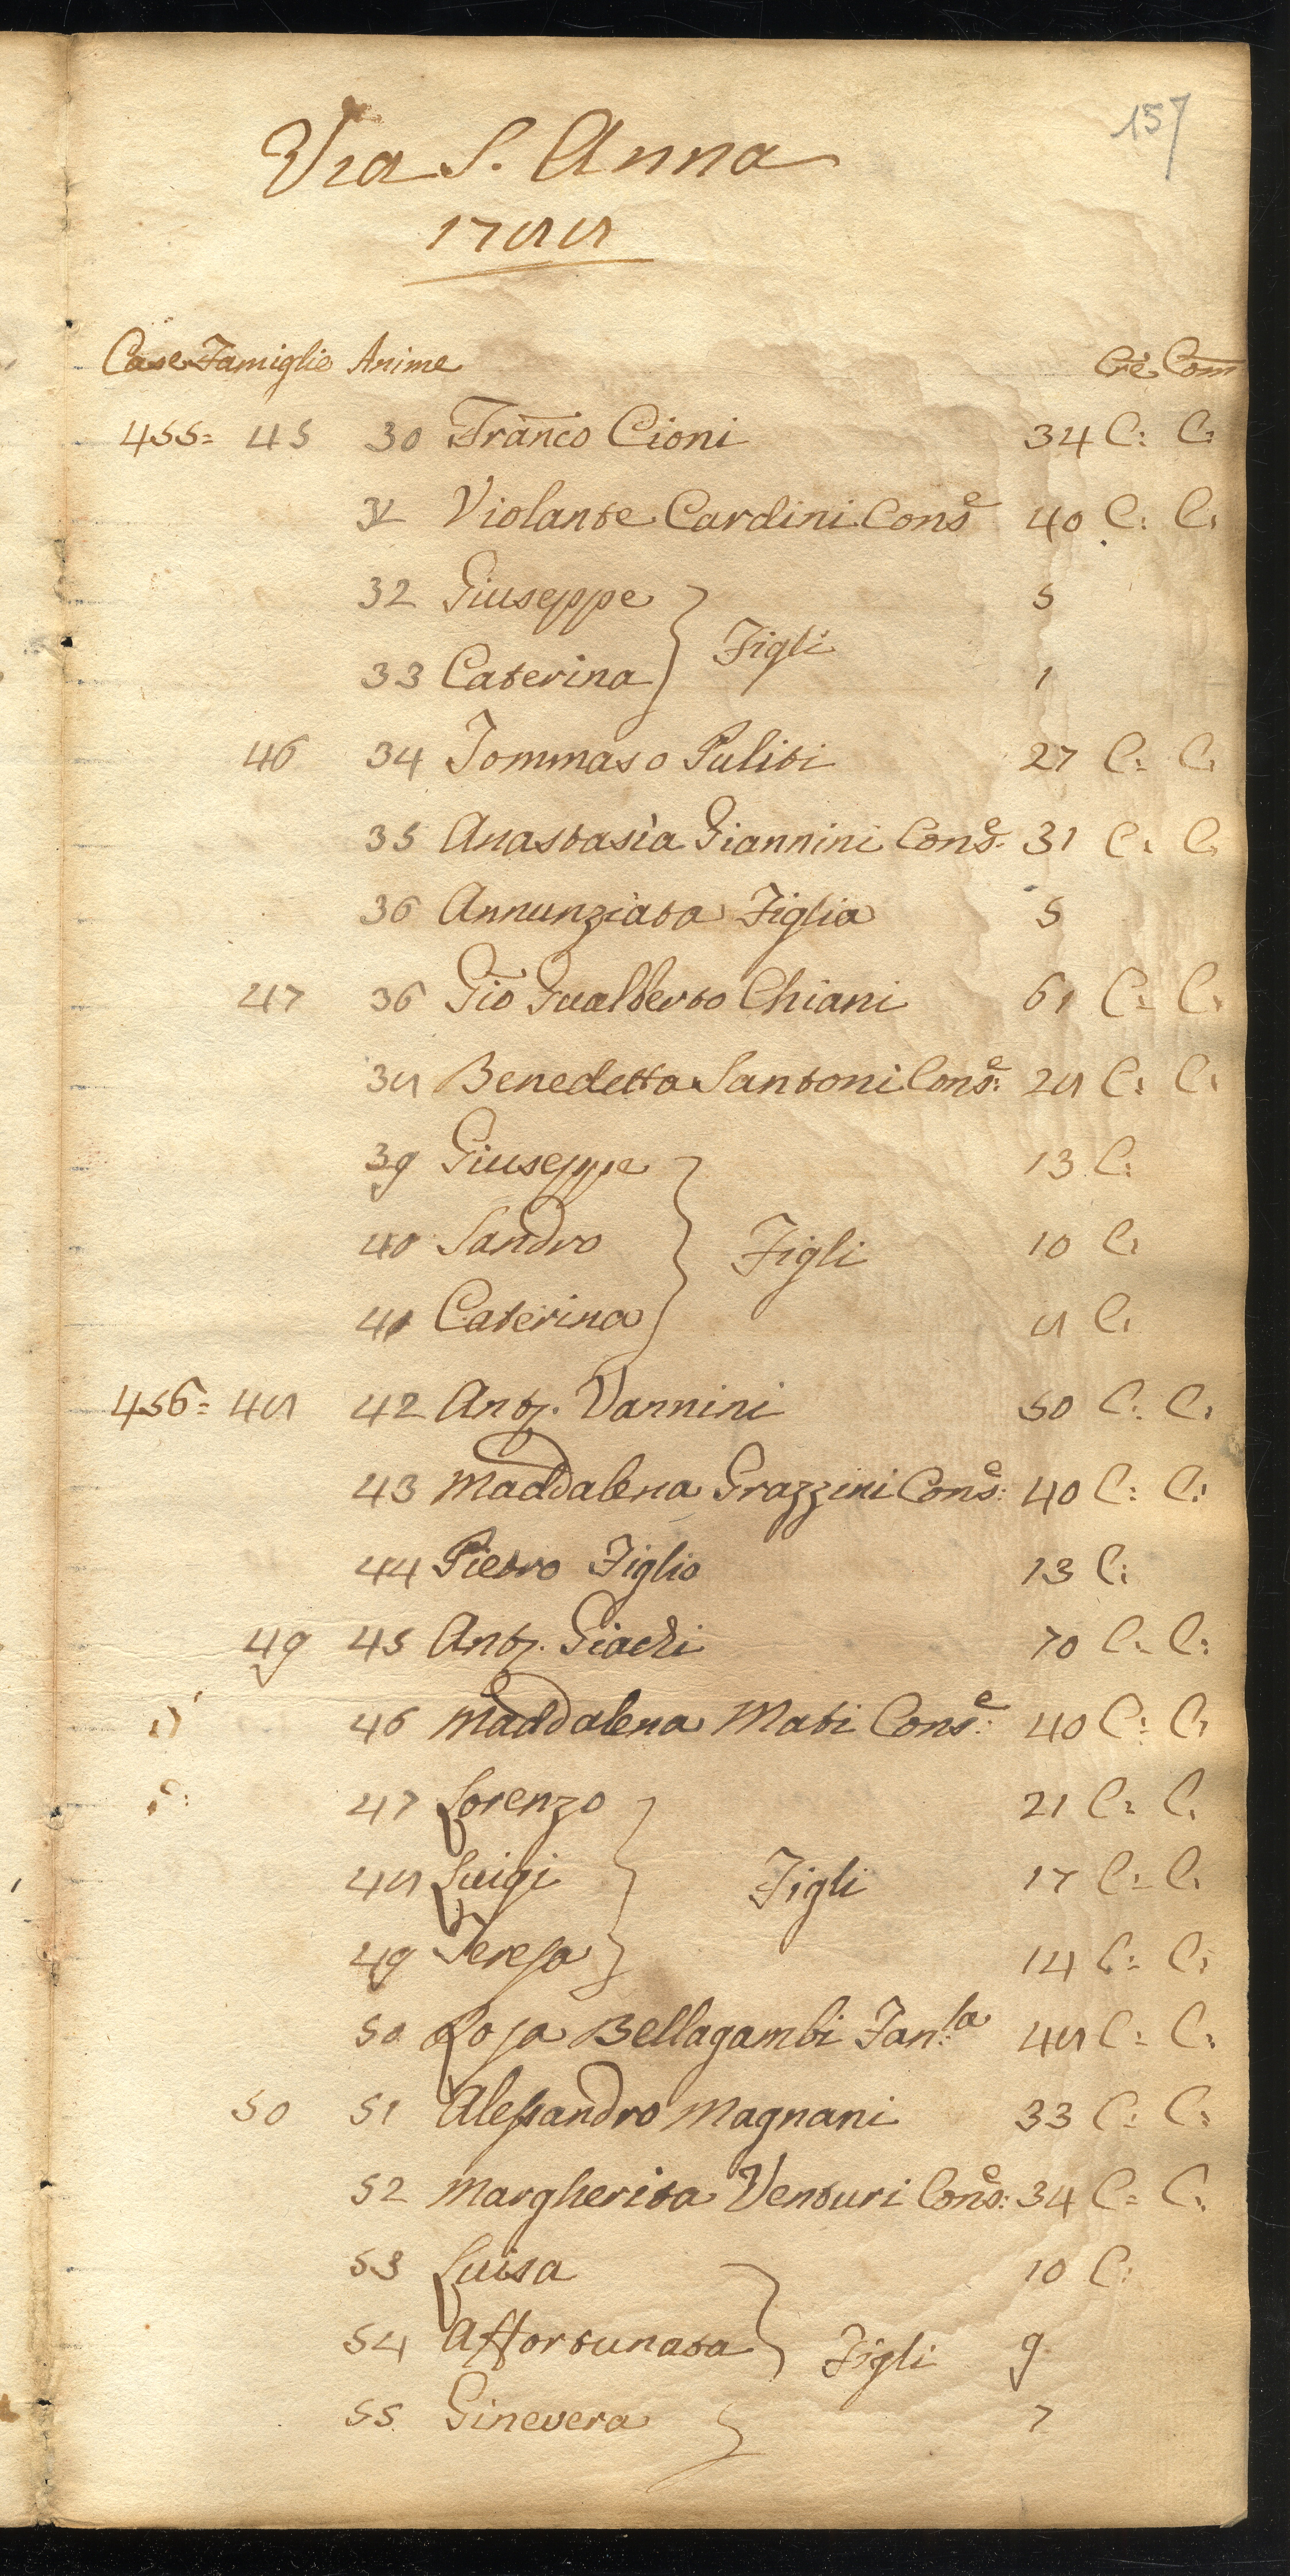 157
Via S. Anna
1788
Case Famiglie Anime Cre Com
455= 45 30 Franco Cioni 34 C: C:
31 Violante Cardini Conse 40 C: C:
32 Giuseppe 5
Figli
33 Caterina 1
46 34 Tommaso Puliti 27 C: C:
35 Anastasia Giannini Conse: 31 C: C:
36 Annunziata Figlia 5
47 36 Gio Gualberto Chiani 61 C: C:
38 Benedetta Santoni Conse: 28 C: C:
39 Giuseppe 13 C:
40 Sandro Figli 10 C:
41 Caterina 8 C:
456= 48 42 Anto. Vannini 50 C: C:
43 Maddalena Grazzini Conse: 40 C: C:
44 Pietro Figlio 13 C:
49 45 Anto. Giachi 70 C: C:
46 Maddalena Mati Conse: 40 C: C:
47 Lorenzo 21 C: C:
48 Luigi Figli 17 C: C:
49 Teresa 14 C: C:
50 Rosa Bellagambi Fan:la 48 C: C:
50 51 Alessandro Magnani 33 C: C:
52 Margherita Venturi Conse: 34 C: C:
53 Luisa 10 C:
54 Affortunata Figli 9
55 Ginevera 7